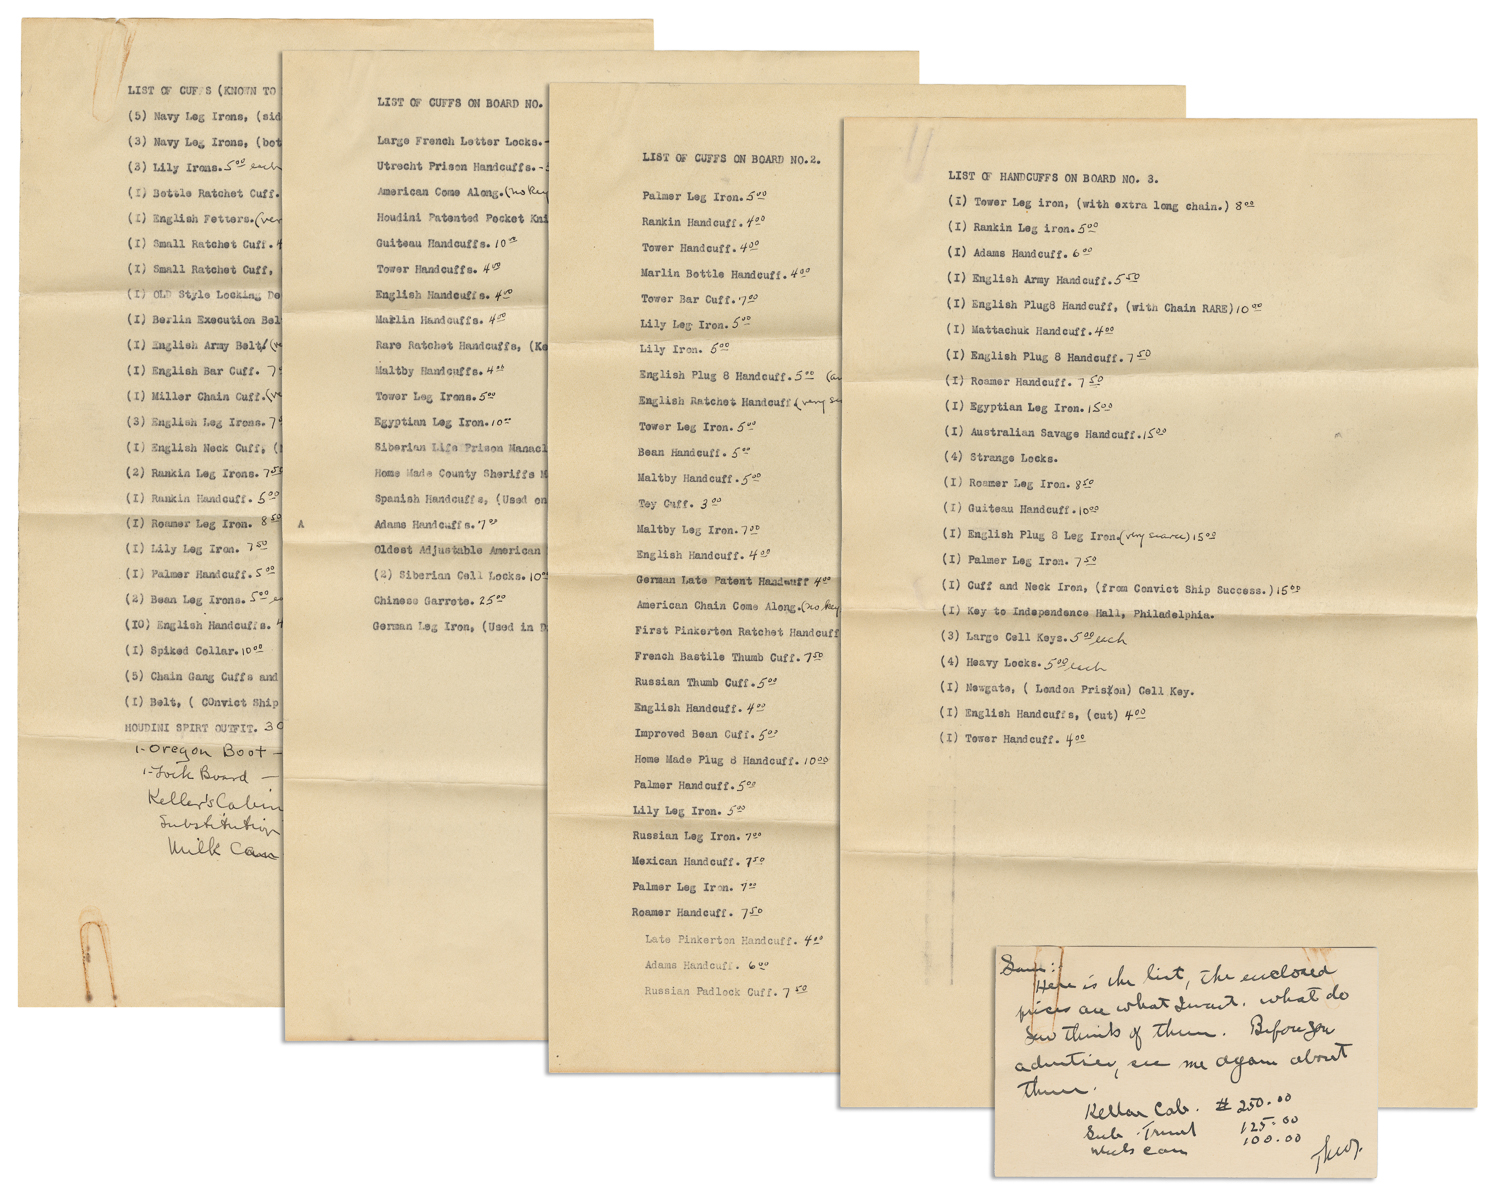 LIST OF CUFFS (KNOWN TO
(5) Navy Leg Irons, (sid
(3) Navy Leg Irons, (bot
(3) Lily Irons. 5.00 each
(I) Bottle Ratchet Cuff.
(I) English Fetters. (ver
(I) Small Ratchet Cuff. 4
(I) Small Ratchet Cuff,
(I) OLD Style Locking De
(I) Berlin Execution Bel
(I) English Army Belt, (v
(I) English Bar Cuff. 7
(I) Miller Chain Cuff. (v
(3) English Leg Irons. 7
(I) English Neck Cuff, (
(2) Rankin Leg Irons. 7.50
(I) Rankin Handcuff. 5.00
(I) Roamer Leg Iron. 8.50
(I) Lily Leg Iron. 7.50
(I) Palmer Handcuff. 5.00
(2) Bean Leg Irons. 5.00 e
(IO) English Handcuffs. 4
(I) Spiked Collar. 10.00
(5) Chain Gang Cuffs and
(I) Belt, ( COnvict Ship
HOUDINI SPIRT OUTFIT. 30
1-Oregon Boot -
1-Lock Board -
Keller's Cabin
Substitution
Milk Can
LIST OF CUFFS ON BOARD NO.
Large French Letter Locks.-
Utrecht Prison Handcuffs.-
American Come Along. (no key
Houdini Patented Pocket Kni
Guiteau Handcuffs. 10.00
Tower Handcuffs. 4.00
English Handcuffs. 4.00
Marlin Handcuffs. 4.00
Rare Ratchet Handcuffs, (Ke
Maltby Handcuffs. 4.00
Tower Leg Irons. 5.00
Egyptian Leg Iron. 10.00
Siberian Life Prison Manacl
Home Made County Sheriffs M
Spanish Handcuffs, (Used on
A Adams Handcuffs. 7.00
Oldest Adjustable American
(2) Siberian Cell Locks. 10.00
Chinese Garrote. 25.00
German Leg Iron, (Used in D
LIST OF CUFFS ON BOARD NO.2.
Palmer Leg Iron. 5.00
Rankin Handcuff. 4.00
Tower Handcuff. 4.00
Marlin Bottle Handcuff. 4.00
Tower Bar Cuff. 7.00
Lily Leg Iron. 5.00
Lily Iron. 5.00
English Plug 8 Handcuff. 5.00 (an
English Ratchet Handcuff (very sc
Tower Leg Iron. 5.00
Bean Handcuff. 5.00
Maltby Handcuff. 5.00
Toy Cuff. 3.00
Maltby Leg Iron. 7.00
English Handcuff. 4.00
German Late Patent Handcuff 4.00
American Chain Come Along. (no key
First Pinkerton Ratchet Handcuff
French Bastile Thumb Cuff. 7.50
Russian Thumb Cuff. 5.00
English Handcuff. 4.00
Improved Bean Cuff. 5.00
Home Made Plug 8 Handcuff. 10.00
Palmer Handcuff. 5.00
Lily Leg Iron. 5.00
Russian Leg Iron. 7.00
Mexican Handcuff. 7.50
Palmer Leg Iron. 7.00
Roamer Handcuff. 7.50
Late Pinkerton Handcuff. 4.00
Adams Handcuff. 6.00
Russian Padlock Cuff. 7.50
LIST OF HANDCUFFS ON BOARD NO. 3.
(I) Tower Leg iron, (with extra long chain.) 8.00
(I) Rankin Leg iron. 5.00
(I) Adams Handcuff. 6.00
(I) English Army Handcuff. 5.50
(I) English Plug8 Handcuff, (with Chain RARE) 10.00
(I) Mattachuk Handcuff. 4.00
(I) English Plug 8 Handcuff. 7.50
(I) Roamer Handcuff. 7.50
(I) Egyptian Leg Iron. 15.00
(I) Australian Savage Handcuff. 15.00
(4) Strange Locks.
(I) Roamer Leg Iron. 8.50
(I) Guiteau Handcuff. 10.00
(I) English Plug 8 Leg Iron. (very scarce) 15.00
(I) Palmer Leg Iron. 7.50
(I) Cuff and Neck Iron, (from Convict Ship Success.) 15.00
(I) Key to Independence Hall, Philadelphia.
(3) Large Cell Keys. 5.00 each
(4) Heavy Locks. 5.00 each
(I) Newgate, ( London Prison) Cell Key.
(I) English Handcuffs, (cut) 4.00
(I) Tower Handcuff. 4.00
Sam:
Here is the list, the enclosed
prices are what I want. what do
you think of them. Before you
advertise, see me again about
them.
Kellar Cab. # 250.00
Sub. Trunk 125.00
Milk can 100.00